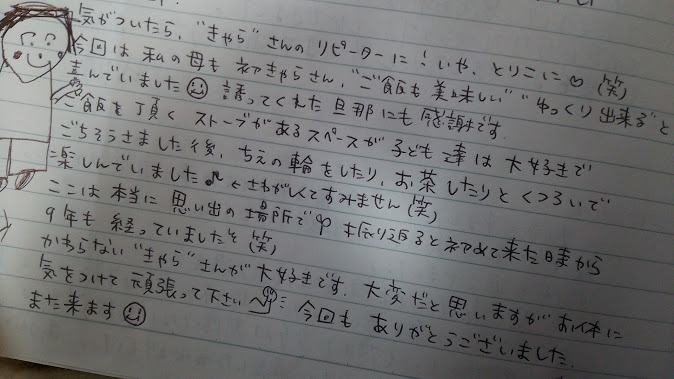 気がついたら、"きゃら"さんのリピーターに！いや、とりこに♡(笑)
今回は私の母も初きゃらさん、"ご飯も美味しい""ゆっくり出来る"と
喜んでいました☺ 誘ってくれた旦那にも感謝です。
ご飯を頂くストーブがあるスペースが子ども達は大好きで
ごちそうさました後、ちえの輪をしたり、お茶したりとくつろいで
楽しんでいました♪ ←さわがしくてすみません(笑)
ここは本当に思い出の場所で 振り返ると初めて来た時から
9年も経っていました(笑)
かわらない"きゃら"さんが大好きです。大変だと思いますがお体に
気をつけて頑張って下さい 今回もありがとうございました。
また来ます☺